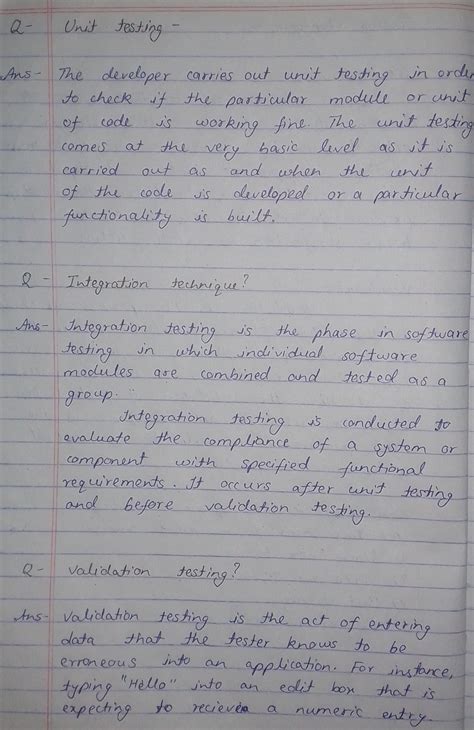 Q- Unit testing -
Ans- The developer carries out unit testing in order
to check if the particular module or unit
of code is working fine. The unit testing
comes at the very basic level as it is
carried out as and when the unit
of the code is developed or a particular
functionality is built.
Q- Integration technique?
Ans- Integration testing is the phase in software
testing in which individual software
modules are combined and tested as a
group.
Integration testing is conducted to
evaluate the compliance of a system or
component with specified functional
requirements. It occurs after unit testing
and before validation testing.
Q- Validation testing?
Ans- Validation testing is the act of entering
data that the tester knows to be
erroneous into an application. For instance,
typing "Hello" into an edit box that is
expecting to recieve a numeric entry.